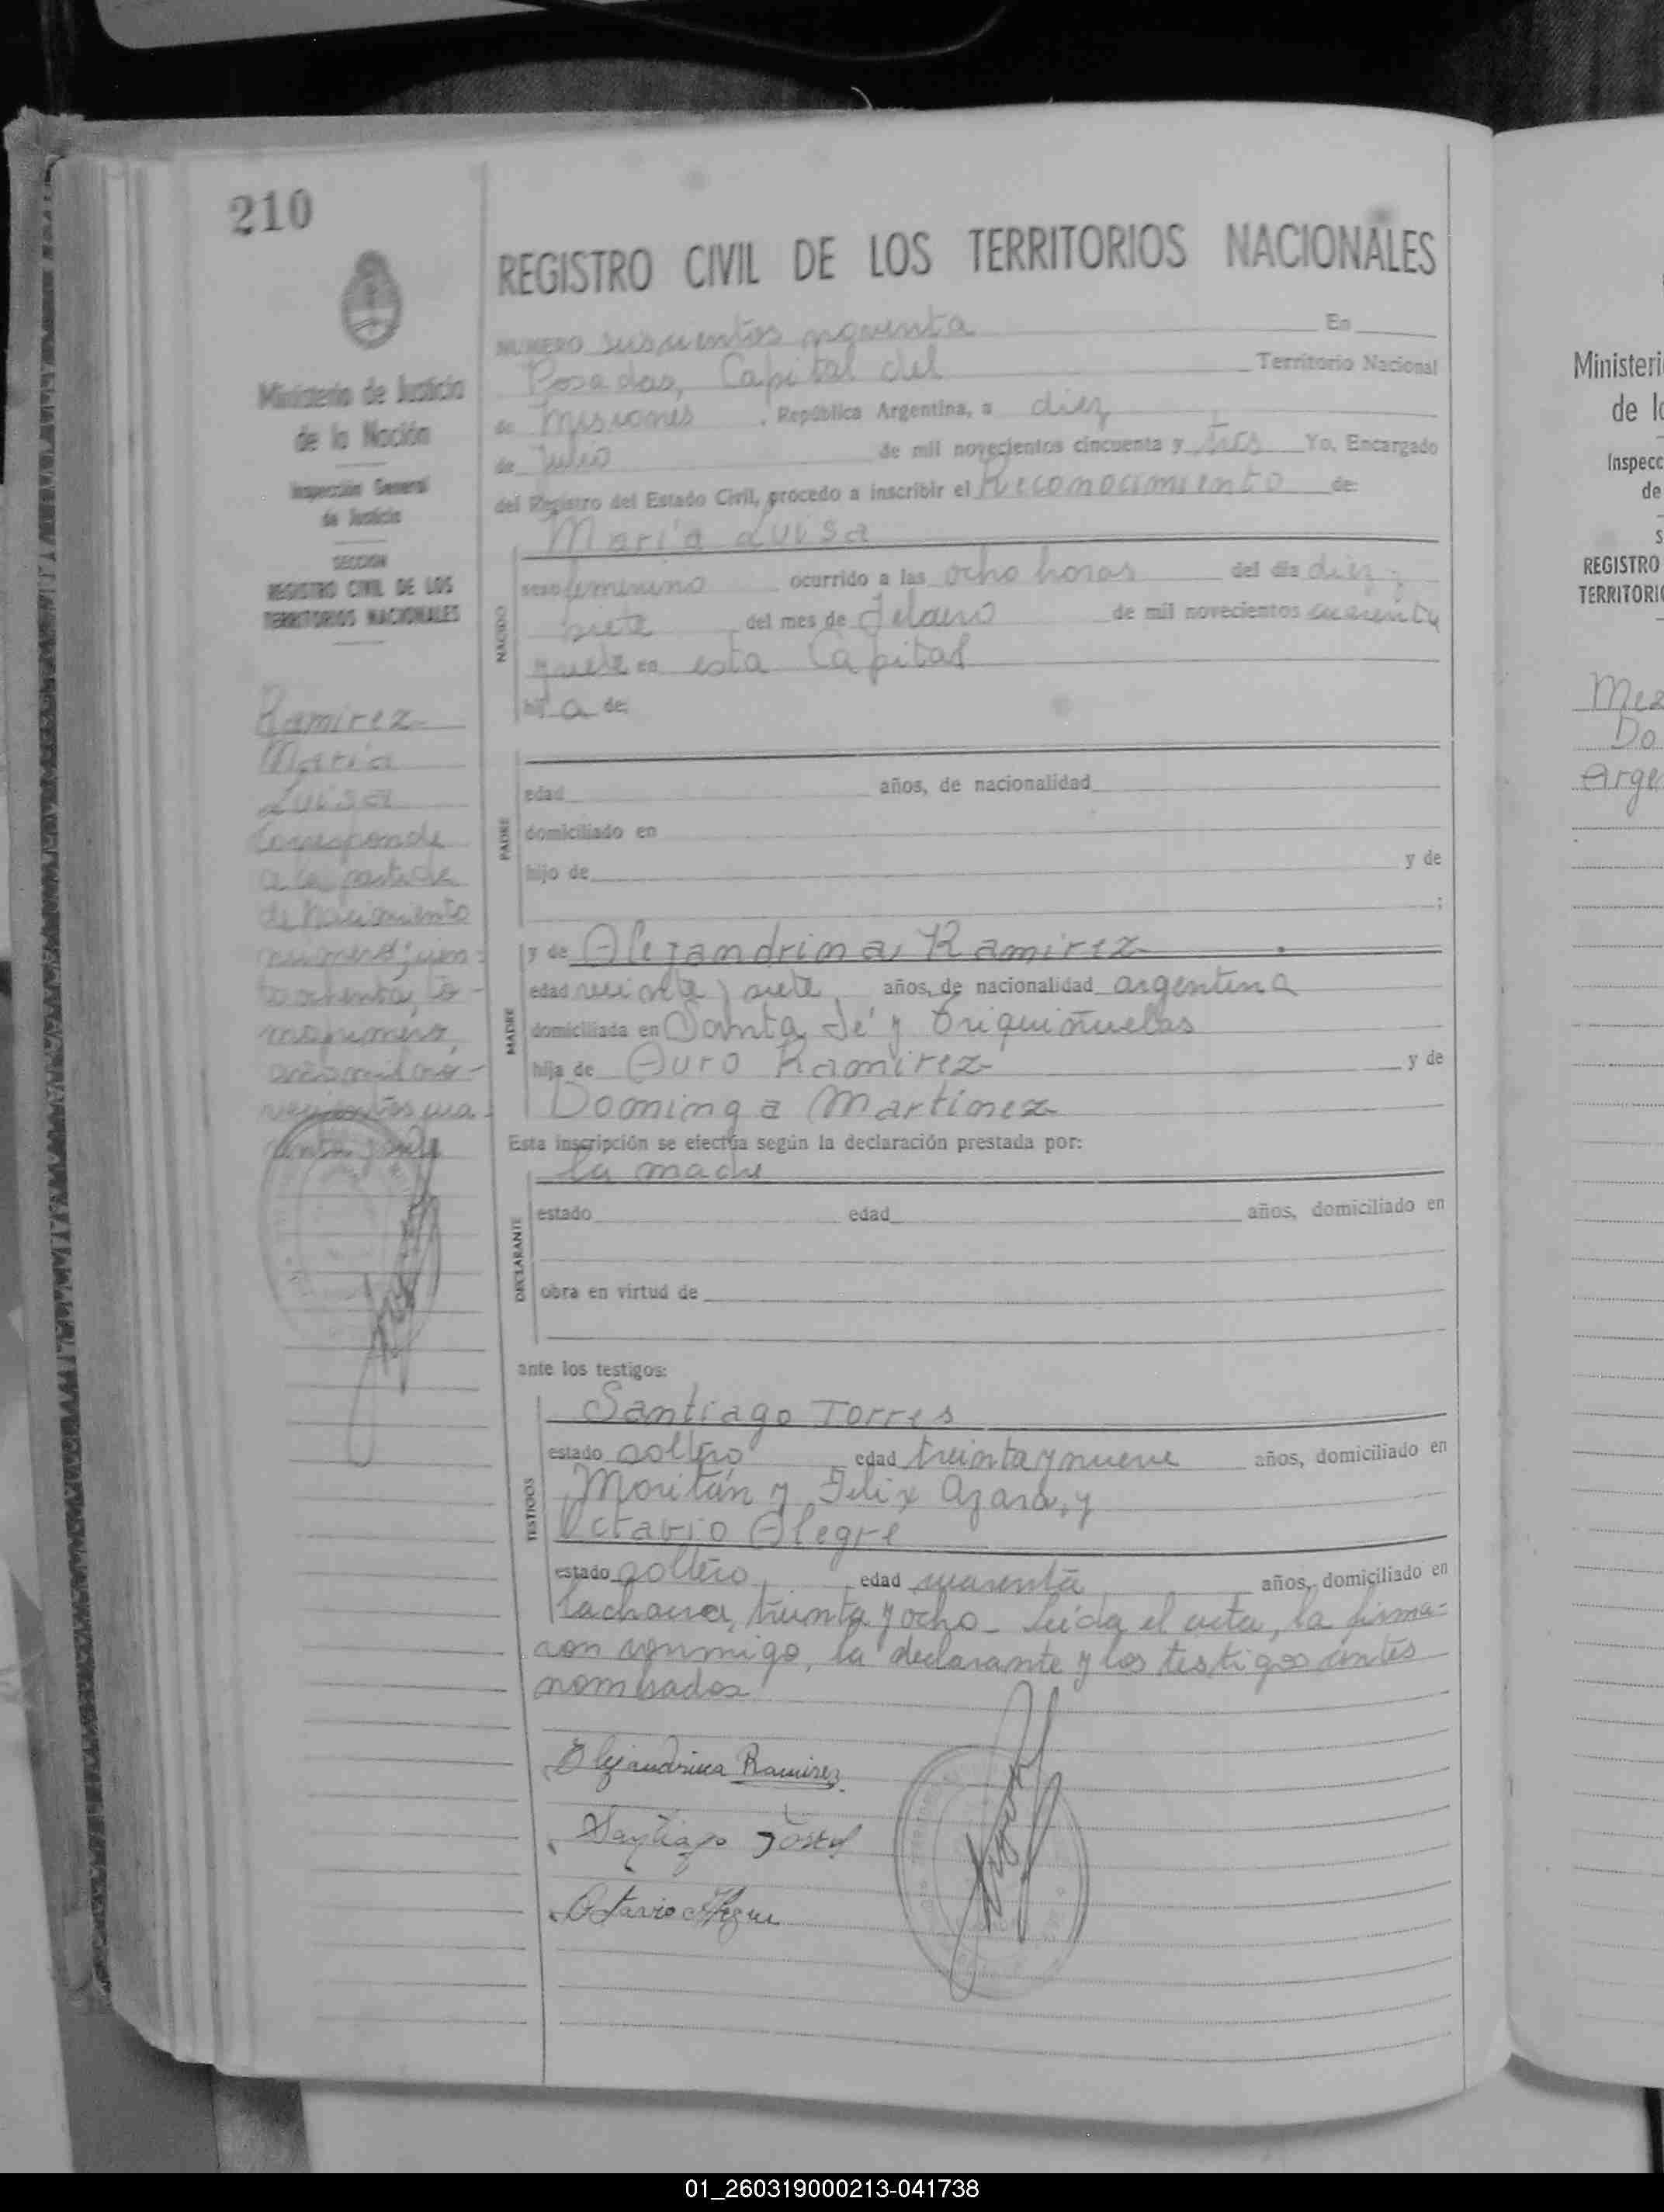 210
REGISTRO CIVIL DE LOS TERRITORIOS NACIONALES
Ministerio de Justicia
de la Nación
Inspección General
de Justicia
SECCION
REGISTRO CIVIL DE LOS
TERRITORIOS NACIONALES
Ramirez
María
Luisa
Corresponde
a la partida
de Nacimiento
ochenta, to-
mo primero,
NUMERO seiscientos noventa En
Posadas, Capital del Territorio Nacional
de Misiones, República Argentina, a diez
de Julio de mil novecientos cincuenta y tres Yo, Encargado
del Registro del Estado Civil, procedo a inscribir el Reconocimiento de:
María Luisa
NACIDO
sexo femenino ocurrido a las ocho horas del día diez y
siete del mes de Febrero de mil novecientos cuarenta
y siete en esta Capital
hija de:
PADRE
edad años, de nacionalidad
domiciliado en
hijo de y de
;
MADRE
y de Alejandrina Ramirez
edad veinte y siete años, de nacionalidad argentina
domiciliada en Santa Fé y
hija de Auro Ramirez y de
Dominga Martinez
Esta inscripción se efectúa según la declaración prestada por:
la madre
DECLARANTE
estado edad años, domiciliado en
obra en virtud de
ante los testigos:
TESTIGOS
Santiago Torres
estado soltero edad treinta y nueve años, domiciliado en
Moritán y Felix Azara, y
Octavio Alegre
estado soltero edad cuarenta años, domiciliado en
treinta y ocho - Leída el acta, la firma-
ron conmigo, la declarante y los testigos antes
nombrados
Alejandrina Ramirez
Santiago Torres
Octavio Alegre
Ministeri
de l
Inspecc
de
S
REGISTRO
TERRITORI
Mez
Do
Arge
01_260319000213-041738